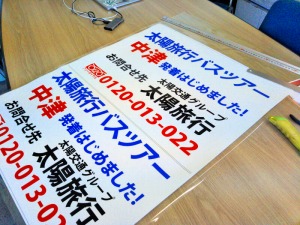 太陽旅行バスツアー
中津発着はじめました!
お問合せ先 太陽交通グループ
太陽旅行
0120-013-022
太陽旅行バスツアー
中津発着はじめました!
お問合せ先 太陽交通グループ
太陽旅行
0120-013-022